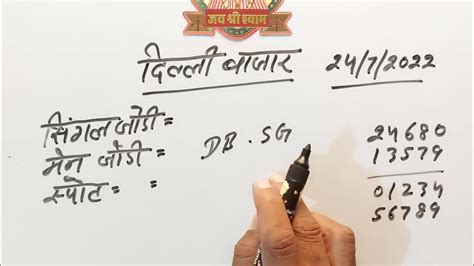 जय श्री श्याम
दिल्ली बाजार 24/7/2022
सिंगल जोडी =
मेन जोडी =
स्पोट = =
DB . SG
24680
13579
01234
56789